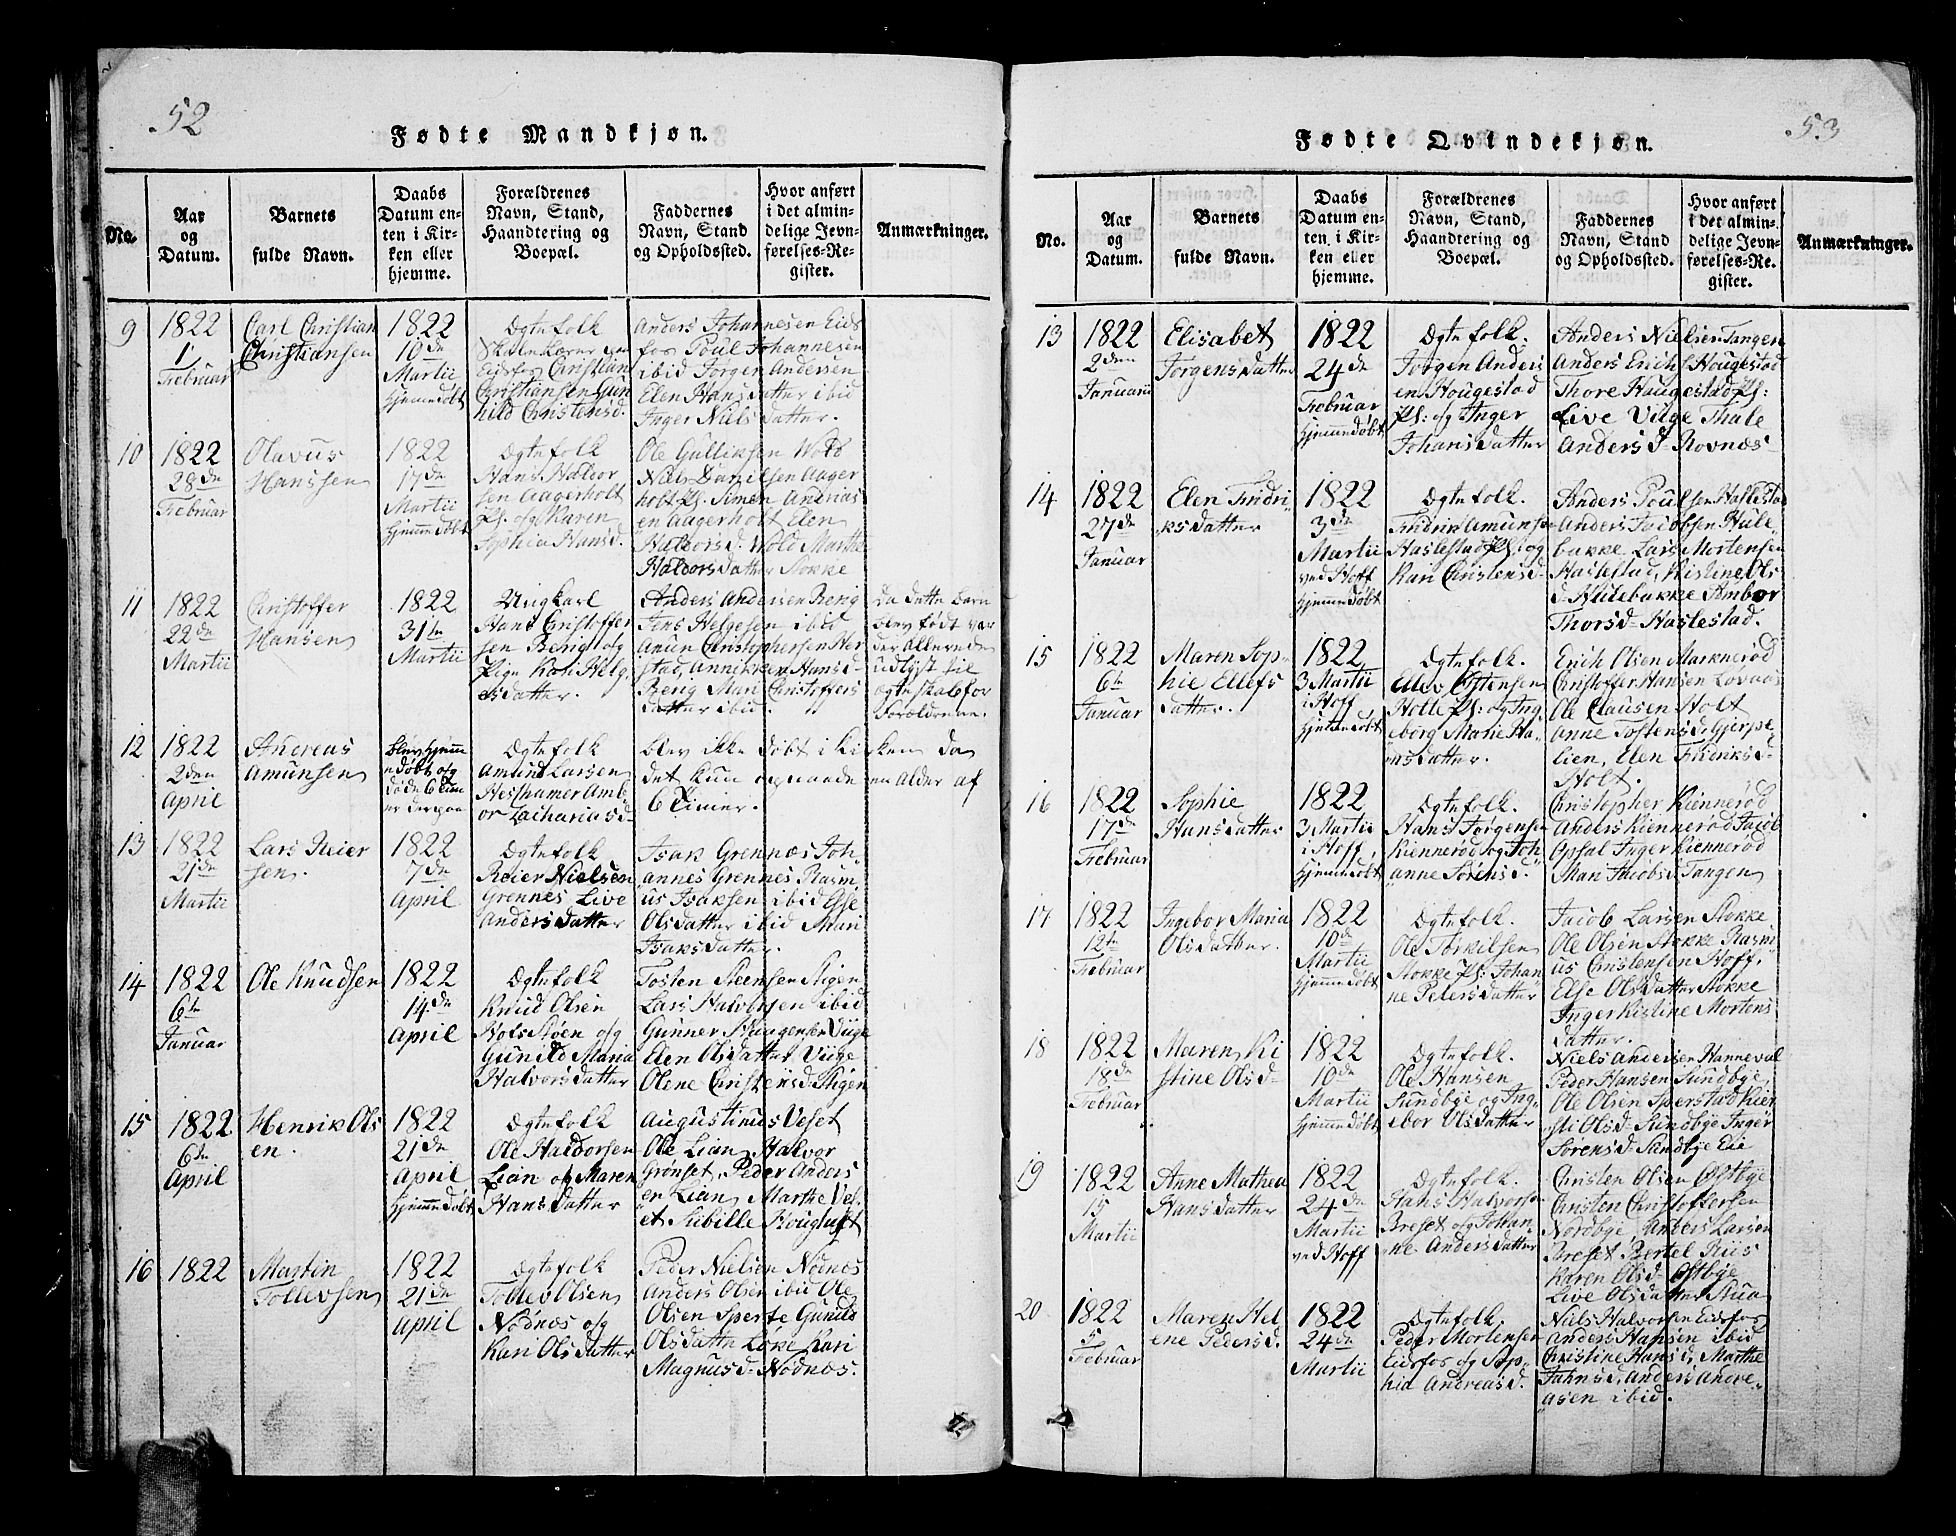 52
Fødte Mandkjøn.
No.
Aar
og
Datum.
Barnets
fulde Navn.
Daabs
Datum en-
ten i Kir-
ken eller
hjemme.
Forældrenes
Navn, Stand,
Haandtering og
Boepæl.
Faddernes
Navn, Stand
og Opholdssted.
Hvor anført
i det almin-
delige Jevn-
førelses-Re-
gister.
Anmærkninger.
9
1822
1
Februar
Carl Christian
Christiansen
1822
10de
Martii
hjemmedøbt
Ægtefolk
Eidsfos Christian
Christiansen Gun
hild Christensd.
Anders Johannesen Eids
fos Poul Johannesen
ibid Jørgen Andersen
Elen Hansdatter ibid
Inger Nielsdatter.
10
1822
28de
Februar
Olavus
Hanssen
1822
17de
Martii
hjemmedøbt
Ægtefolk
Hans Haldor
sen Aagerholt
Pl. og Karen
Sophia Hansd.
Ole Gulliksen Wold
Niels Danielsen Aager
holt Pl. Simen Andrias
en Aagerholt Elen
Haldorsd. Wold Marthe
Haldorsdatter Stokke
11
1822
22de
Martii
Christoffer
Hansen
1822
31te
Martii
Ungkarl
Hans Christoffer
sen Berig og
Pige Kari Helg
esdatter.
Anders Andersen Berig
Jens Helgesen ibid
Amun Christophersen Her
stad, Anniken Hansd
Berig Mari Christoffers
datter ibid.
Da dette Barn
blev født var
der allerede
udlyst til
ægteskab for
Foroldrene.
12
1822
2den
April
Andreas
Amunsen
blev hjemme
døbt og
døde 6 Time
er derpaa
Ægtefolk
Amund Larsen
Amb
or Zachariasd
blev ikke døbt i Kirken da
det kun opnaade en alder af
6 Timer.
13
1822
21de
Martii
Lars Reier
sen.
1822
7de
April
Ægtefolk
Reier Nielsen
Grennes Live
Andersdatter
Isak Grennæs Joh
annes Grennes Rasm
us Isaksen ibid Else
Olsdatter ibid Mari
Isaksdatter.
14
1822
6te
Januar
Ole Knudsen
1822
14de
April
Ægtefolk
Knud Olsen
og
Gunild Maria
Halvorsdatter
Tosten Steensen Stigen
Lars Halvorsen ibid
Gunner Haugensen Viige
Elen Olsdatter Viige
Olene Christensd Stigen
15
1822
6te
April
Henrik Ols
en.
1822
21de
April
hjemmedøbt
Ægtefolk
Ole Haldorsen
Lian og Maren
Hansdatter
Augustinus Veset
Ole Lian Halvor
Grønset, Peder Anders
en Lian Marthe Ves
et Sibille
16
1822
Martin
Tollevsen
1822
21de
April
Ægtefolk
Tollev Olsen
Nødnæs og
Kari Olsdatter
Peder Nielsen Nødnæs
Anders Olsen ibid Ole
Olsen Sperte Gunild
Olsdattr Løke Kari
Magnusd Nødnæs.
53
Fødte Qvindekjøn.
No.
Aar
og
Datum.
Barnets
fulde Navn.
Daabs
Datum en-
ten i Kir-
ken eller
hjemme.
Forældrenes
Navn, Stand,
Haandtering og
Boepæl.
Faddernes
Navn, Stand
og Opholdssted.
Hvor anført
i det almin-
delige Jevn-
førelses-Re-
gister.
Anmærkninger.
13
1822
2den
Januarii
Elisabet
Jørgensdatter
1822
24de
Februar
hjemmedøbt
Ægtefolk.
Jørgen Anders
en Hougestad
Pl: og Inger
Johansdatter
Anders Nielsen Tangen
Anders Erichs Hougestad
Thore Haugestad Pl:
Live Viige Thale
Andersd Rovnæs
14
1822
27de
Januar
Elen Fridri
ksdatter
1822
3de
Martii
ved Hoff
hjemmedøbt
Ægtefolk.
Fridrik Amunse
Haslestad Pl: og
Kari Christensd
Anders Poulsen Haslestad
Anders Jacobsen Hule
bakke Lars Mortensen
Haslestad, Kistine Ols
d Hulebakke Ambor
Thorsd Haslestad.
15
1822
6te
Januar
Maren Sop
hie Ellefs
datter.
1822
3 Martii
i Hoff
hjemmedøbt
Ægtefolk.
Ellev Ostensen
Holte Pl: og Ing
eborg Marie Ha
nsdatter.
Erich Olsen Marknerød
Christoffer Hansen Lovaas
Ole Clausen Holt
Anne Tostensd, Gjerpe
lien, Elen Fridriksd
Holt.
16
1822
17de
Februar
Sophie
Hansdatter
1822
3 Martii
i Hoff
hjemmedøbt
Ægtefolk.
Hans Jørgensen
Kiennerød og Joh
anne Sørensd
Christopher Kiennerød
Anders Kiennerød Jacob
Opsal Inger Kiennerød
Mari Jacobsd Tangen
17
1822
12te
Februar
Ingebor Maria
Olsdatter.
1822
10de
Martii
hjemmedøbt
Ægtefolk.
Ole Torkilsen
Stokke Pl: Johan
ne Petersdatter
Jacob Larsen Stokke
Ole Olsen Stokke Rasm
us Christensen Hoff,
Else Olsdatter Stokke
Inger Kistine Mortens
datter.
18
1822
18de
Februar
Maren Ki
stine Olsd
1822
10de
Martii
hjemmedøbt
Ægtefolk.
Ole Hansen
Sundbye og Ing
ebor Olsdatter
Niels Andersen Hanneval
Peder Hansen Sundbye
Ole Olsen Sperstad Kier
sti Olsd Sundbye Inger
Sørensd Sundbye Eie
19
1822
15
Martii
Anne Mathea
Hansdatter
1822
24de
Martii
ved Hoff
Ægtefolk.
Hans Halvorse
Breset og Johan
ne Andersdatter
Christen Olsen Østbye
Christen Christoffersen
Nordbye, Anders Larsen
Breset Bertel Riis
Karen Olsd Østbye
Live Olsdatter Rua
20
1822
5
Februar
Maren Hel
ene Pedersd.
1822
24de
Martii
Ægtefolk.
Peder Mortensen
Eidsfos og Sop
hia Andreasd.
Niels Halvorsen Eidsfos
Anders Hansen ibid
Christine Hansd, Marthe
Jahnsd, Anders Andre
asen ibid.